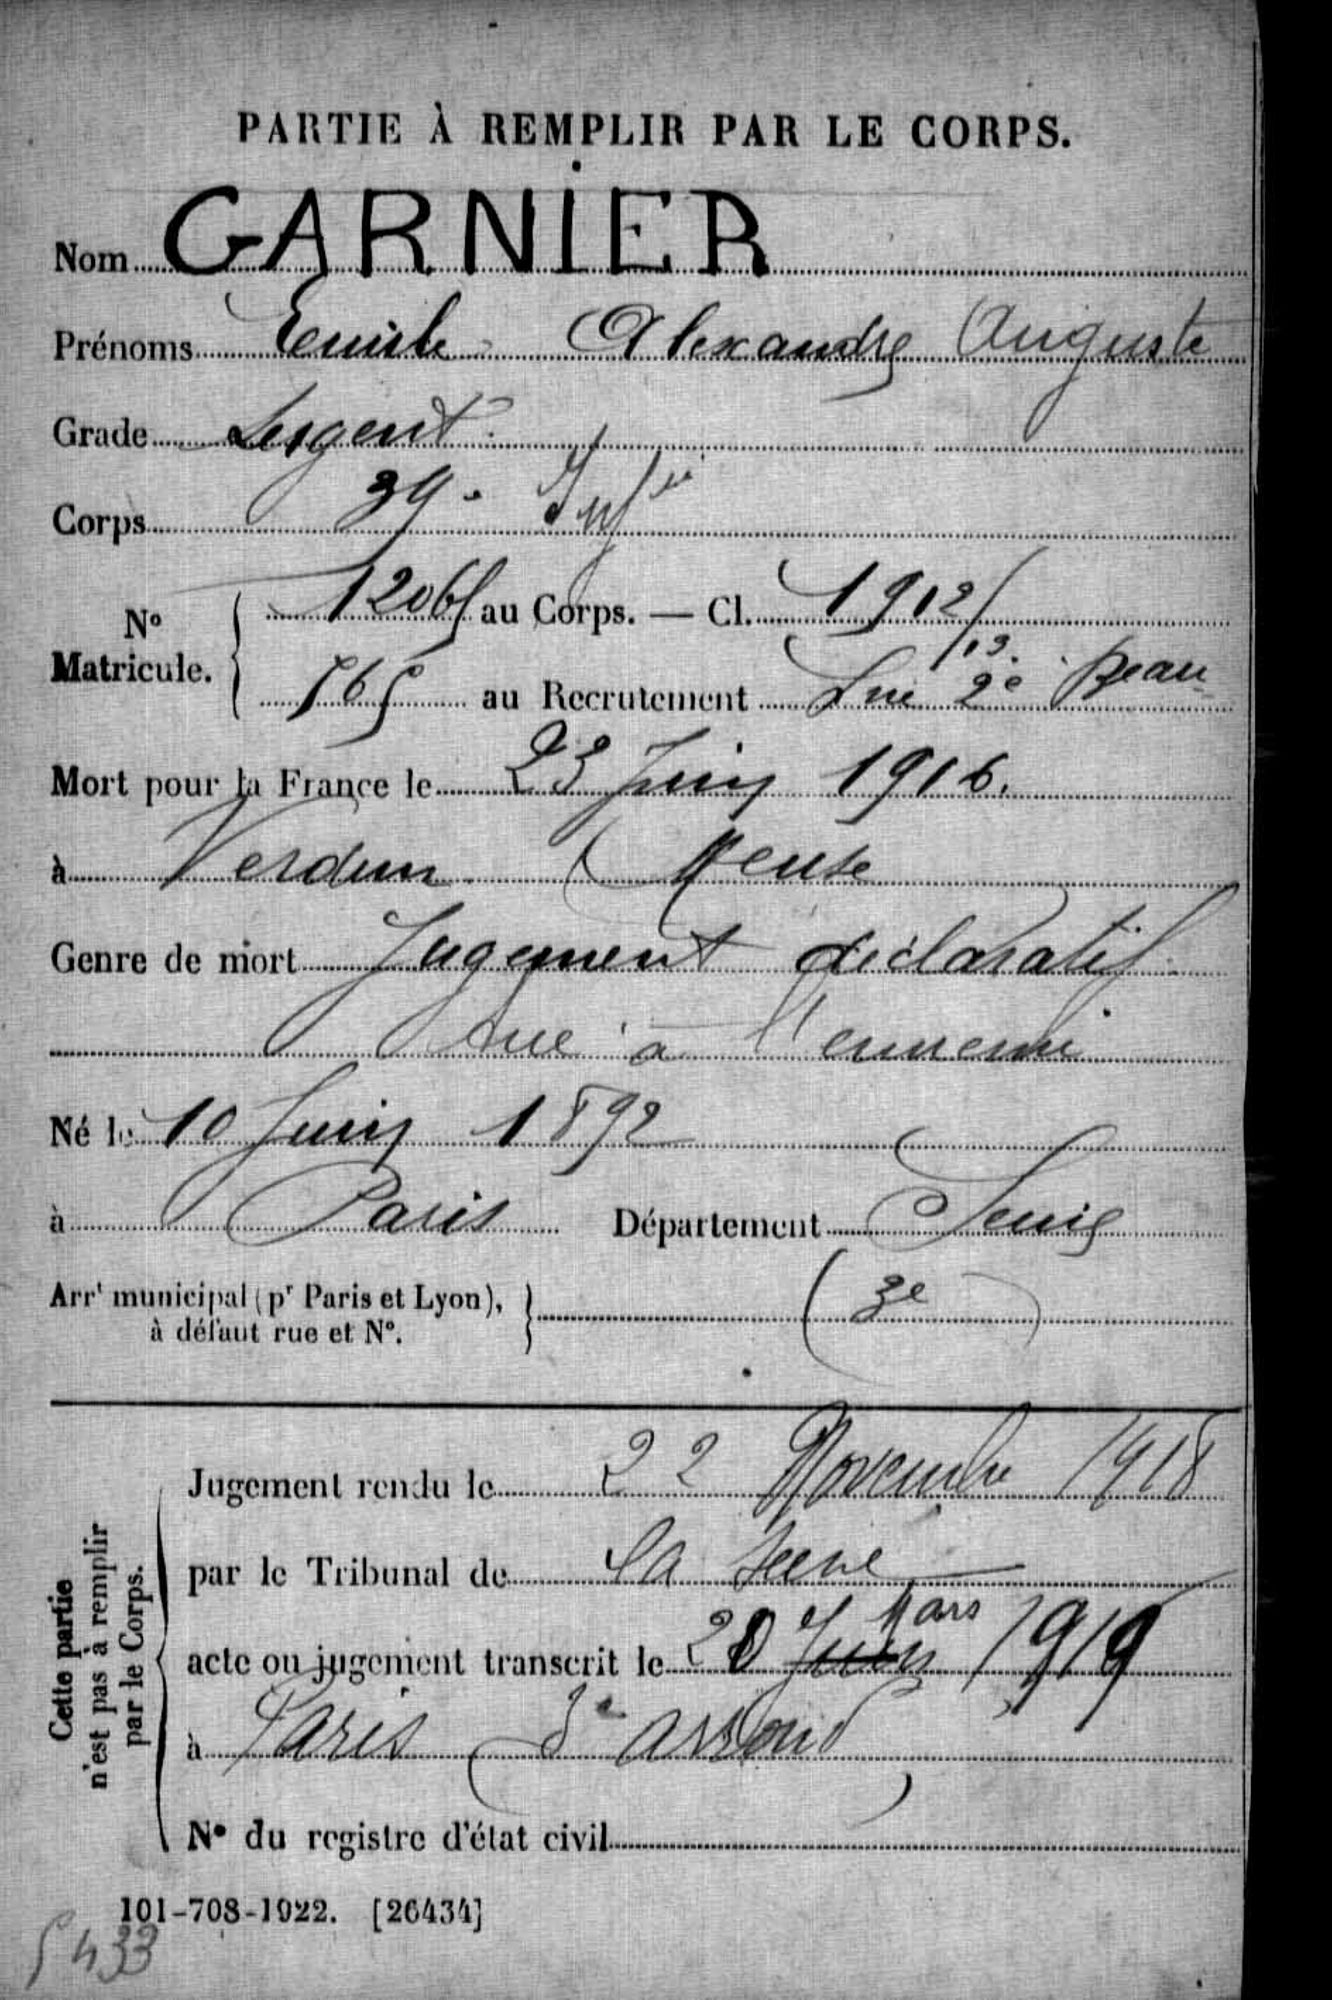 PARTIE À REMPLIR PAR LE CORPS.
Nom GARNIER
Prénoms Emile Alexandre Auguste
Grade Sergent
Corps 39e Inf ie
No Matricule. 12065 au Corps. — Cl. 1912/13.
565 au Recrutement Sne 2e Beau
Mort pour la France le 23 Juin 1916.
à Verdun (Meuse
Genre de mort Jugement déclaratif
tué à l'ennemi
Né le 10 Juin 1892
à Paris Département Seine
Arrt municipal (pr Paris et Lyon),
à défaut rue et No.
(3e)
Cette partie
n'est pas à remplir
par le Corps.
Jugement rendu le 22 Novembre 1918
par le Tribunal de la Seine
acte ou jugement transcrit le 20 Mars 1919
à Paris (3e arrond)
No du registre d'état civil
101-708-1922. [26434]
5433